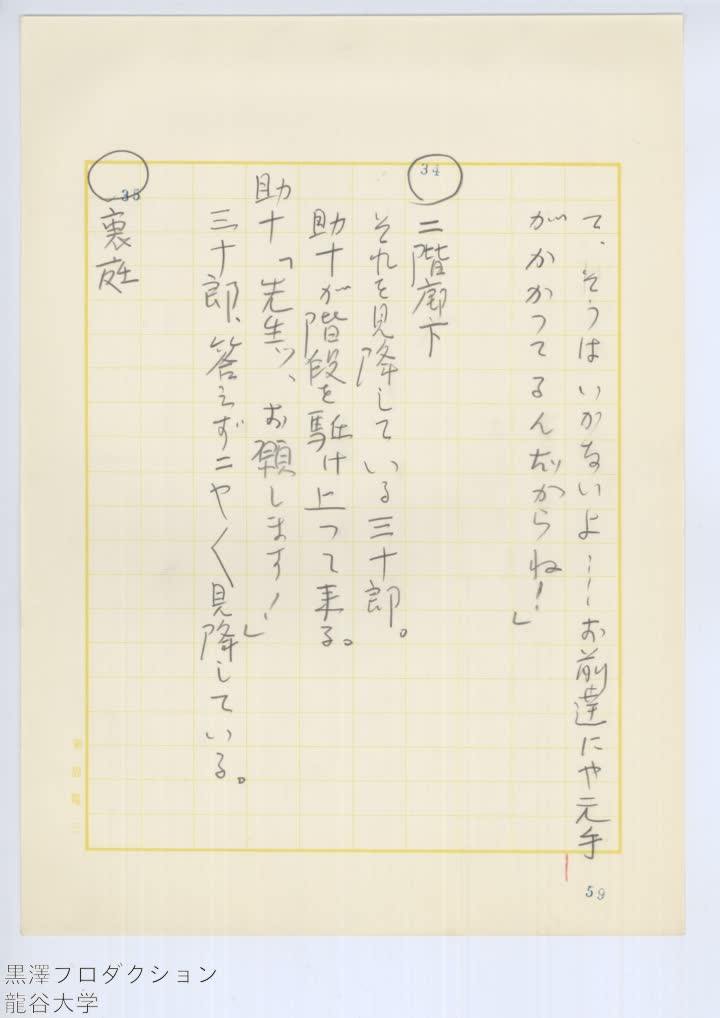 て、そうはいかないよ……お前達にや元手
がかかつてるんだからね！」
34
二階廊下
それを見降している三十郎。
助十が階段を駈け上つて来る。
助十「先生ッ、お願します！」
三十郎、答えずニヤ〱見降している。
35
裏庭
59
黒澤フロダクション
龍谷大学